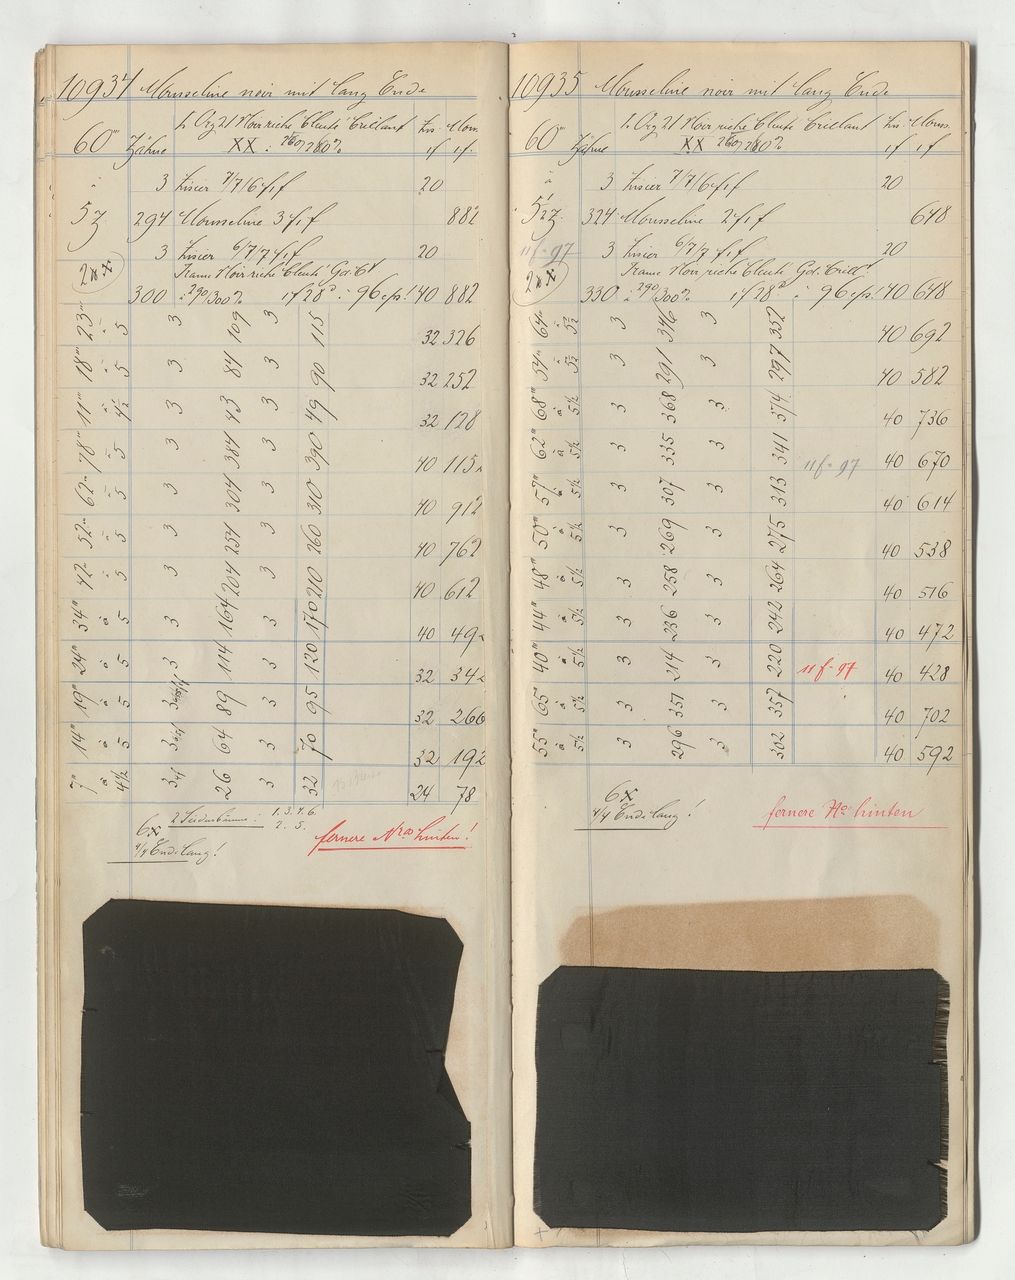 10934 Mousseline noir mit lang Ende
60''' Zähne
1. Org 21 Noir riche cleuté brillant Lis. Mouss.
XX : 260/280% 1f 1f.
3 Lisier 7/7/6 f1f 20
à
5 Z. 294 Mousseline 3f1f 882
3 Lisier 6/7/7 f1f 20
2xx
300 à 290/300% 1f 28 à 96 cps! 40 882
23''' à 5 3 109 3 115 32 326
18''' à 5 3 84 3 90 32 252
11''' à 4½ 3 43 3 49 32 128
78''' à 5 3 384 3 390 40 1152
62 à 5 3 304 3 310 40 912
52 à 5 3 254 3 260 40 762
42 à 5 3 204 3 210 40 612
34''' à 5 3 164 3 170 40 492
24''' à 5 3 114 3 120 32 342
19''' à 5 3 89 3 95 32 266
14''' à 5 3 64 3 70 32 192
7''' à 4½ 3 26 3 32 24 78
6x 2 Seidenbäume: 1. 3. 4. 6.
2. 5.
4/4 Ende lang!
fernere Nros hinten!
10935 Mousseline noir mit lang Ende
60''' Zähne
1. Org 21 Noir riche cleuté brillant Lis. Mouss.
XX 260/280% 1f 1f
à
3 Lisier 7/7/6 f1f 20
5½ Z. 324 Mousseline 2f1f 648
11f-97
3 Lisier 6/7/7 f1f 20
2xx
330 à 290/300% 1f 28 à 96 cps! 40 648
64''' à 5½ 3 346 3 352 40 692
54''' à 5½ 3 291 3 297 40 582
68''' à 5½ 3 368 3 374 40 736
62''' à 5½ 3 335 3 341 11f-97 40 670
57''' à 5½ 3 307 3 313 40 614
50''' à 5½ 3 269 3 275 40 538
48''' à 5½ 3 258 3 264 40 516
44''' à 5½ 3 236 3 242 40 472
40''' à 5½ 3 214 3 220 11f-97 40 428
65 à 5½ 3 351 3 357 40 702
55''' à 5½ 3 296 3 302 40 592
6x
4/4 Ende lang!
fernere Nos hinten